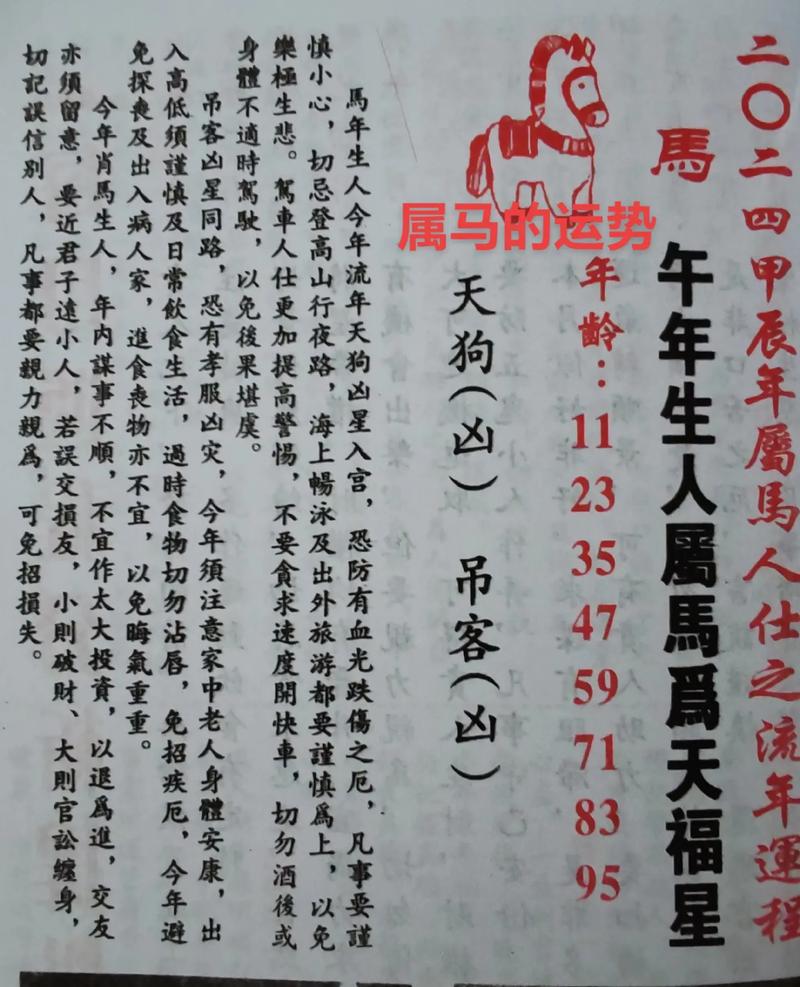 二〇二四甲辰年屬馬人仕之流年運程
馬
午年生人屬馬爲天福星
属马的运势
年齡：11 23 35 47 59 71 83 95
天狗（凶） 吊客（凶）
馬年生人今年流年天狗凶星入宫，恐防有血光跌傷之厄，凡事要謹
慎小心，切忌登高山行夜路，海上暢泳及出外旅游都要謹慎爲上，以免
樂極生悲。駕車人仕更加提高警惕，不要貪求速度開快車，切勿酒後或
身體不適時駕駛，以免後果堪虞。
吊客凶星同路，恐有孝服凶灾，今年須注意家中老人身體安康，出
入高低須謹慎及日常飲食生活，過時食物切勿沾唇，免招疾厄，今年避
免探喪及出入病人家，進食喪物亦不宜，以免晦氣重重。
今年肖馬生人，年内謀事不順，不宜作太大投資，以退爲進，交友
亦須留意，要近君子遠小人，若誤交損友，小則破財、大則官訟纏身，
切記誤信别人，凡事都要親力親爲，可免招損失。